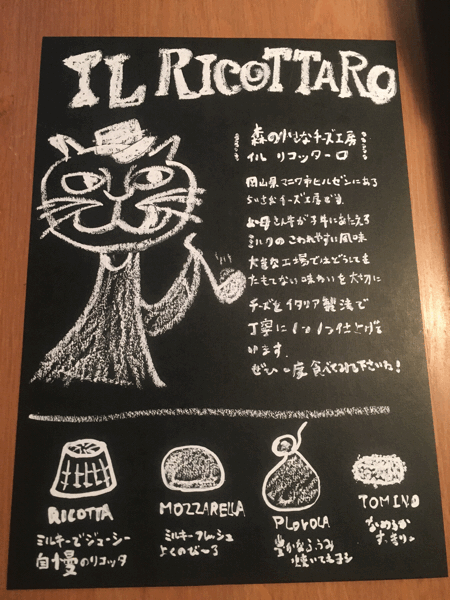 IL RICOTTARO
森の小さなチーズ工房
イル リコッターロ
岡山県マニワ市ヒルゼンにある
ちいさなチーズ工房です。
お母さん牛が子牛にあたえる
ミルクのこわれやすい風味
大きな工場ではどうしても
たもてない味わいを大切に
チーズをイタリア製法で
丁寧に1つ1つ仕上げて
います。
ぜひ一度食べてみて下さいね!
RICOTTA
ミルキーでジューシー
自慢のリコッタ
MOZZARELLA
ミルキーフレッシュ
よくのび〜る
PLOVOLA
豊かなふうみ
焼いてもヨシ
TOMINO
なめらか
すっきり。